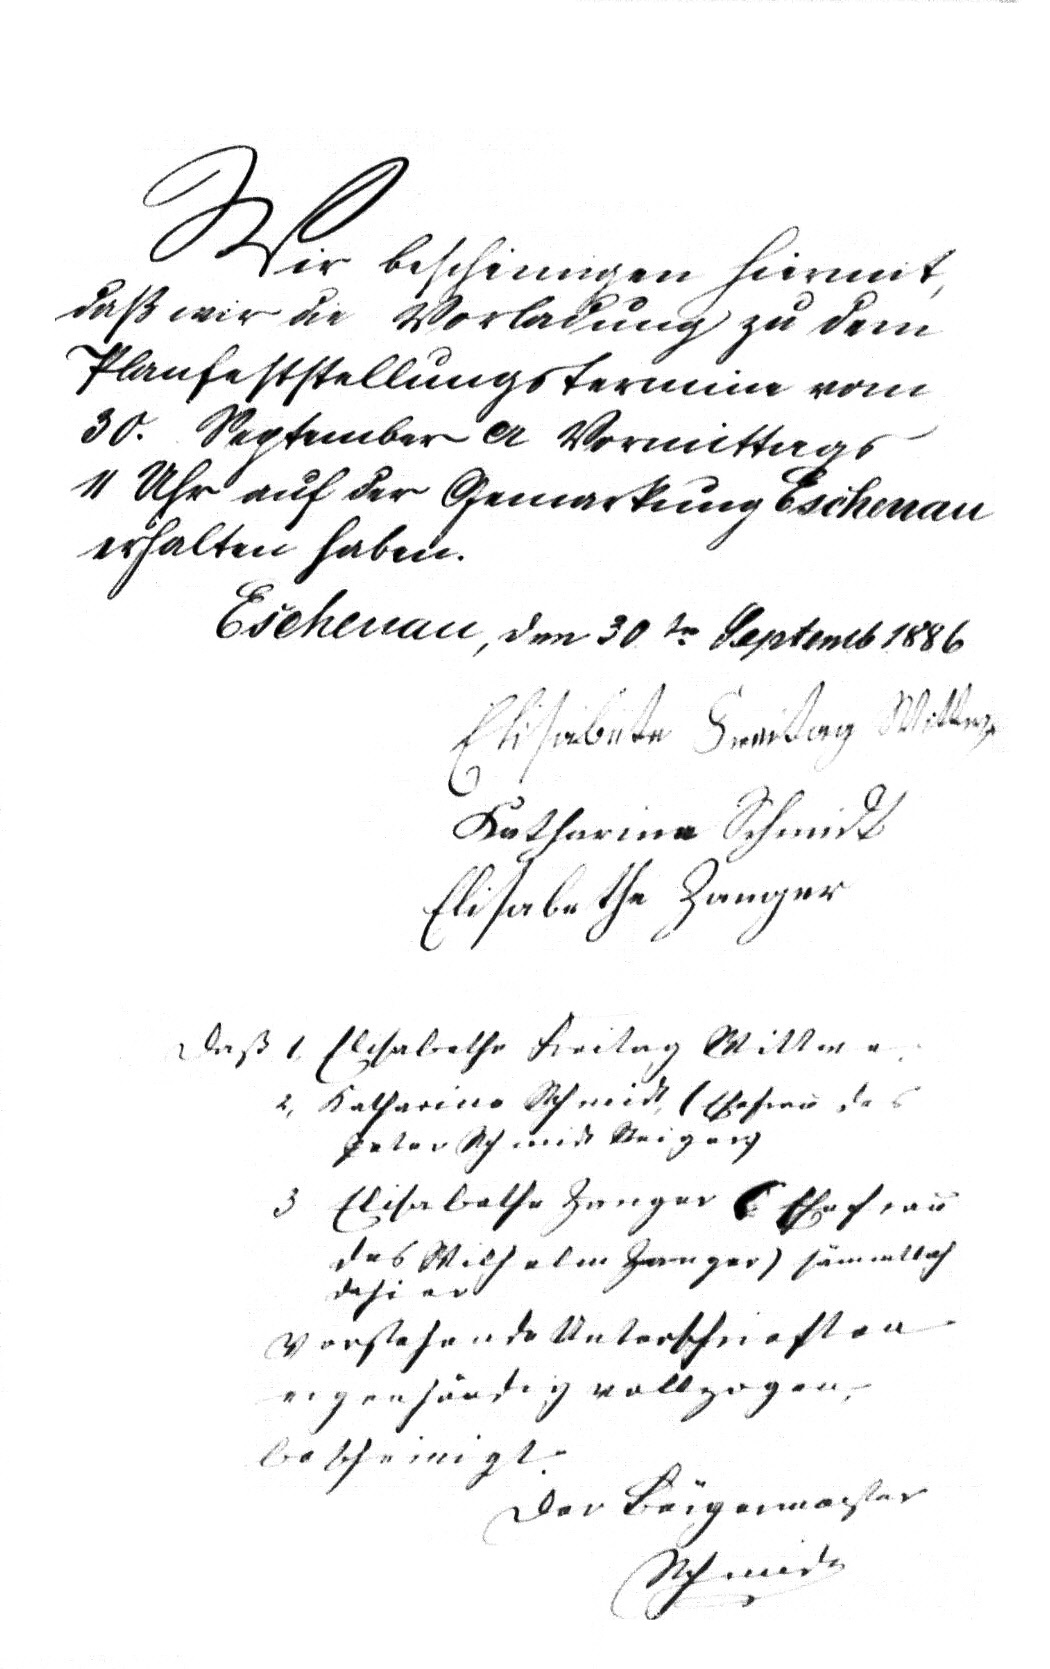 Wir bescheinigen hiermit,
daß wir die Vorladung zu dem
Planfeststellungstermine vom
30. September a Vormittags
11 Uhr auf der Gemarkung Eschenau
erhalten haben.
Eschenau, den 30ten Septemb 1886
Elisabete Freitag Wittwe
Katharina Schmidt
Elisabethe Zanger
Daß 1, Elisabethe Freitag Wittwe,
2, Katharina Schmidt, (Ehefrau des
Peter Schmidt Steiger)
3 Elisabethe Zanger (Ehefrau
des Wilhelm Zanger) sämmtlich
dahier
vorstehende Unterschriften
eigenhändig vollzogen,
bescheinigt
Der Bürgermeister
Schmidt